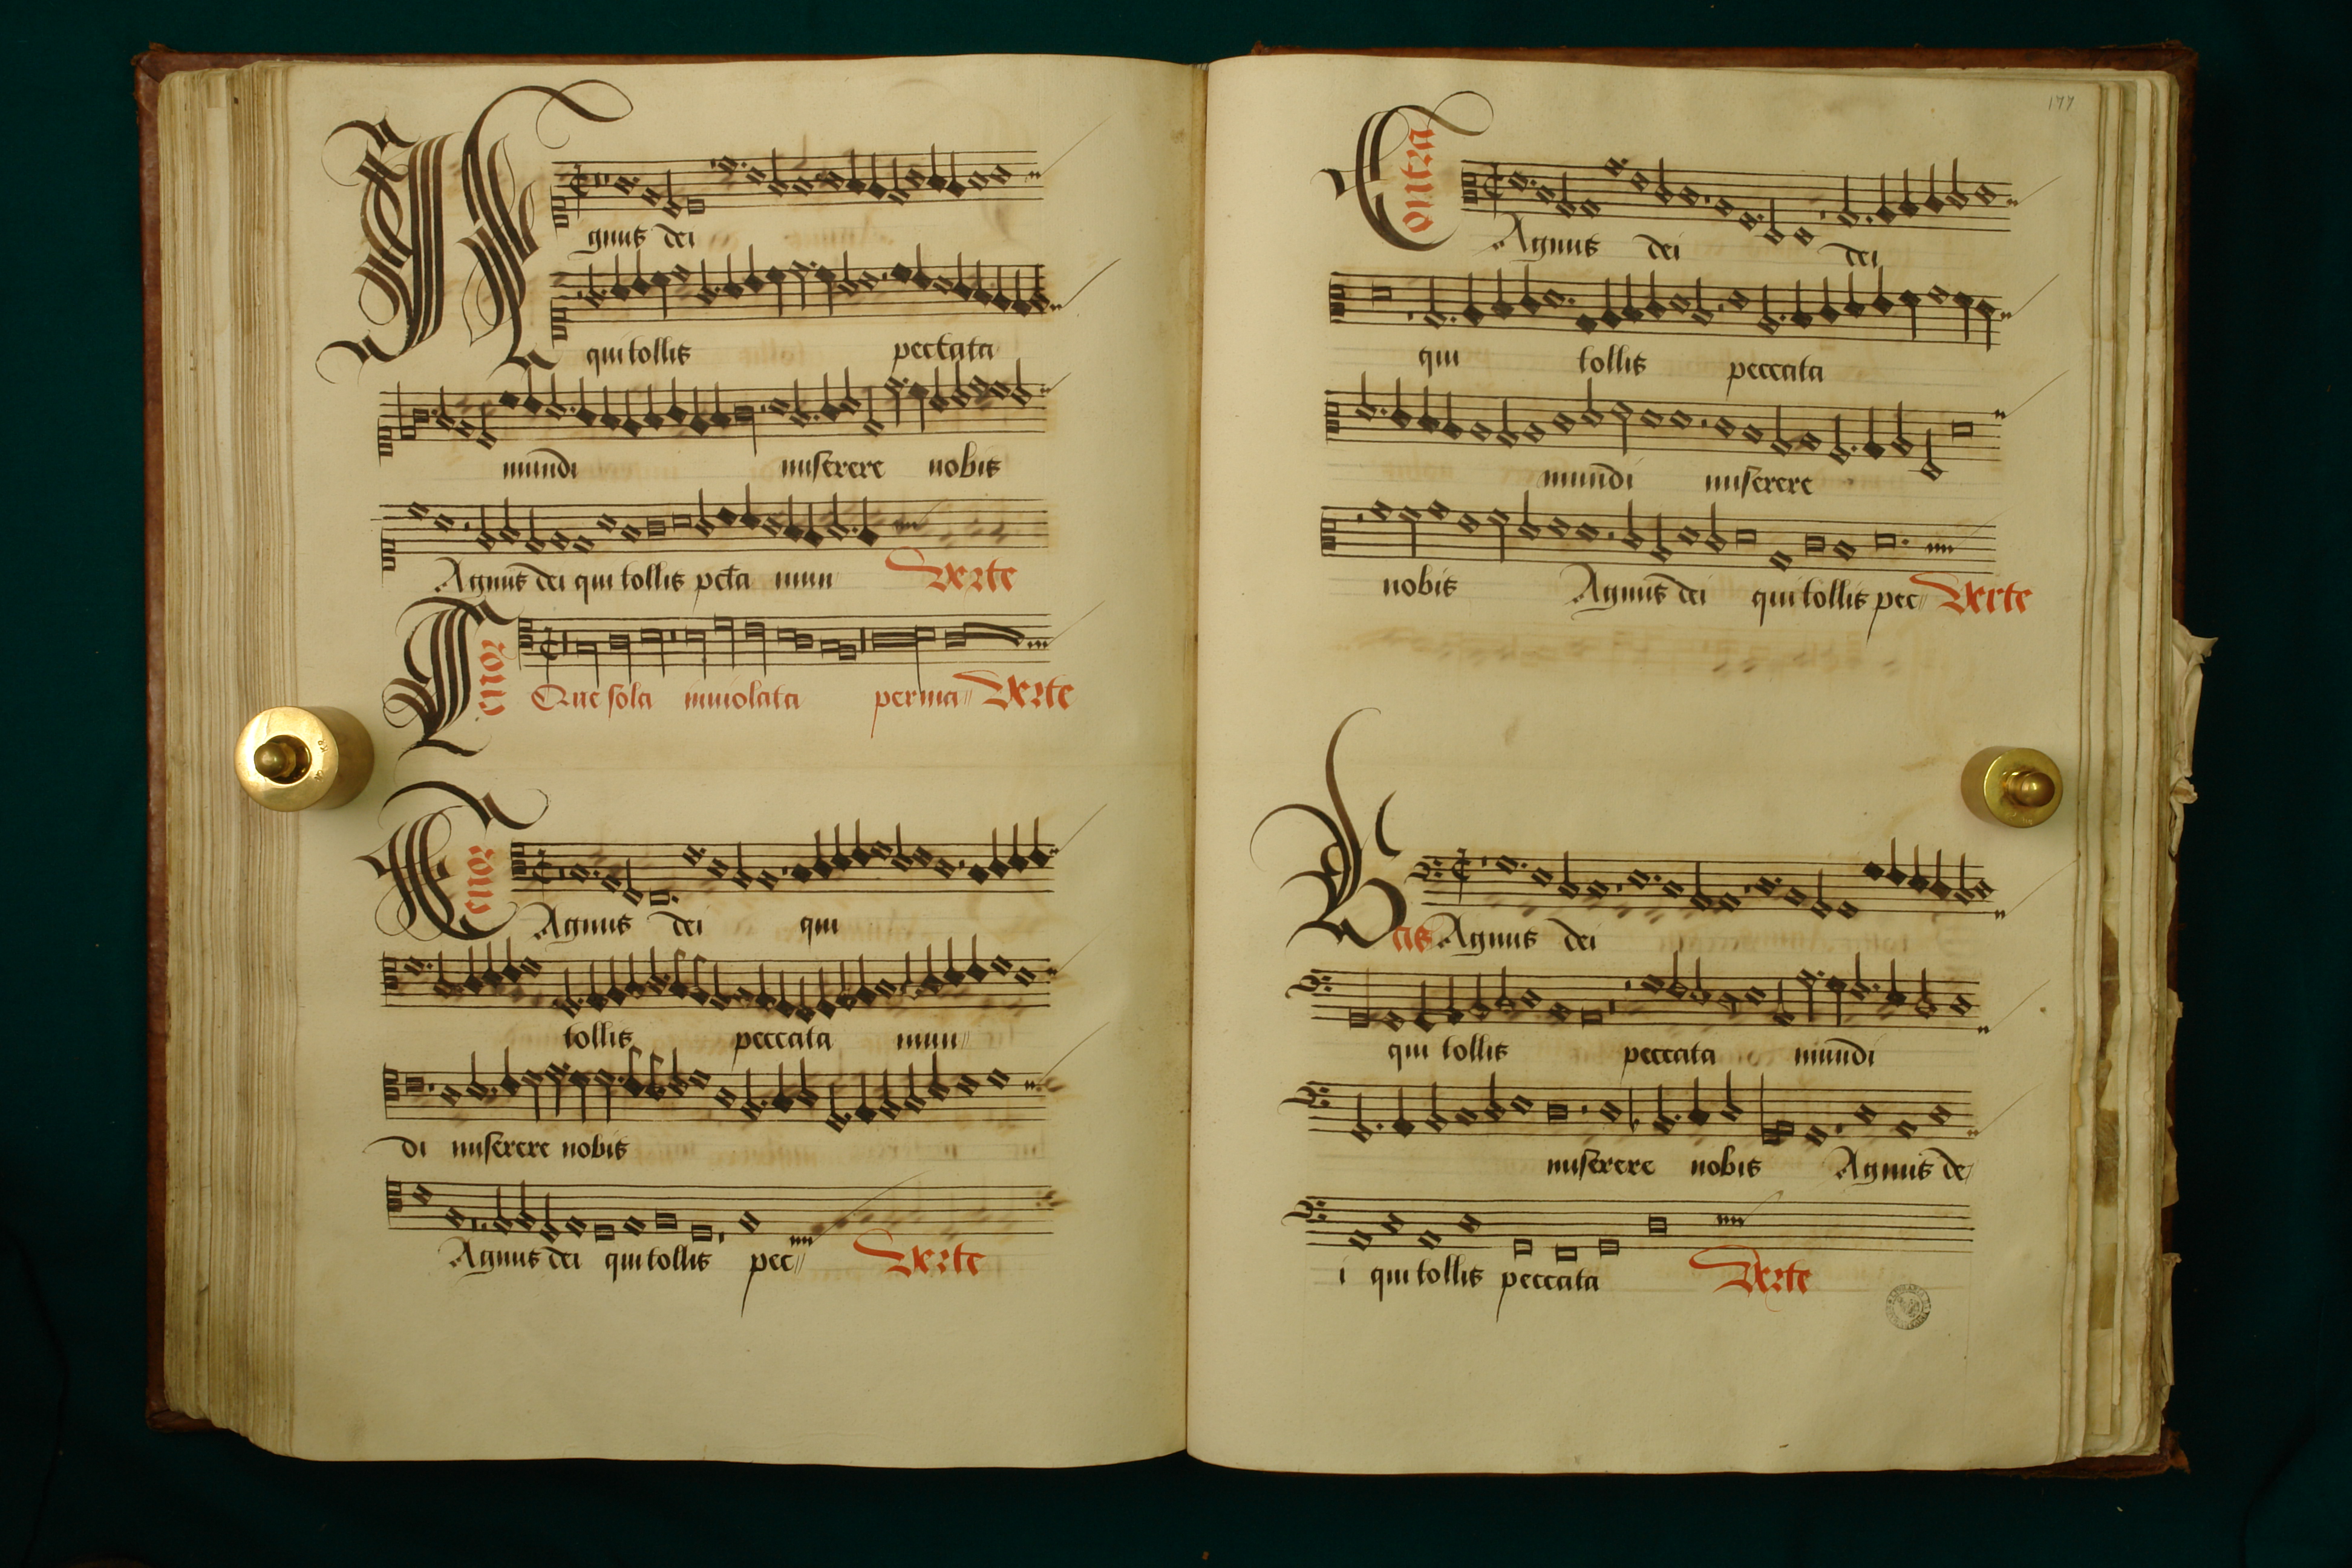 Agnus dei
qui tollis peccata
mundi miserere nobis
Agnus dei qui tollis pcta mun Verte
Tenor
Que sola inuiolata perma Verte
Tenor
Agnus dei qui
tollis peccata mun
di miserere nobis
Agnus dei qui tollis pec Verte
177
Contra
Agnus dei dei
qui tollis peccata
mundi miserere
nobis Agnus dei qui tollis pec Verte
Bas Agnus dei
qui tollis peccata mundi
miserere nobis Agnus de
i qui tollis peccata Verte